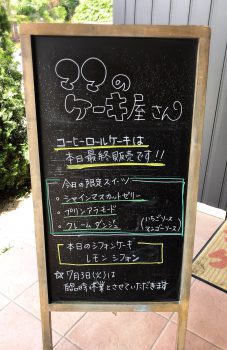 ??の
ケーキ屋さん
コーヒーロールケーキは
本日最終販売です!!
今日の限定スイーツ
・シャインマスカットゼリー
・プリンアラモード
・クレームダンジュ
(いちごソース
マンゴーソース)
本日のシフォンケーキ
レモンシフォン
☆7月3日(火)は
臨時休業とさせていただきます